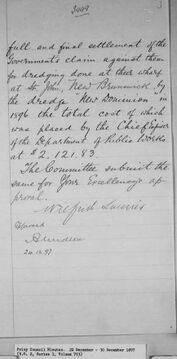 3999
3
full and final settlement of the
Government's claim against them
for dredging done at their wharf
at St. John, New Brunswick, by
the dredge New Dominion in
1896 the total cost of which
was placed by the Chief Engineer
of the Department of Public Works
at $2.121.83
The Committee submit the
same for Your Excellency's ap-
proval.
Wilfrid Laurier
Aberdeen
24.12.97
Privy Council Minutes. 22 December - 30 December 1897
(R.G. 2, Series 1, Volume 755)